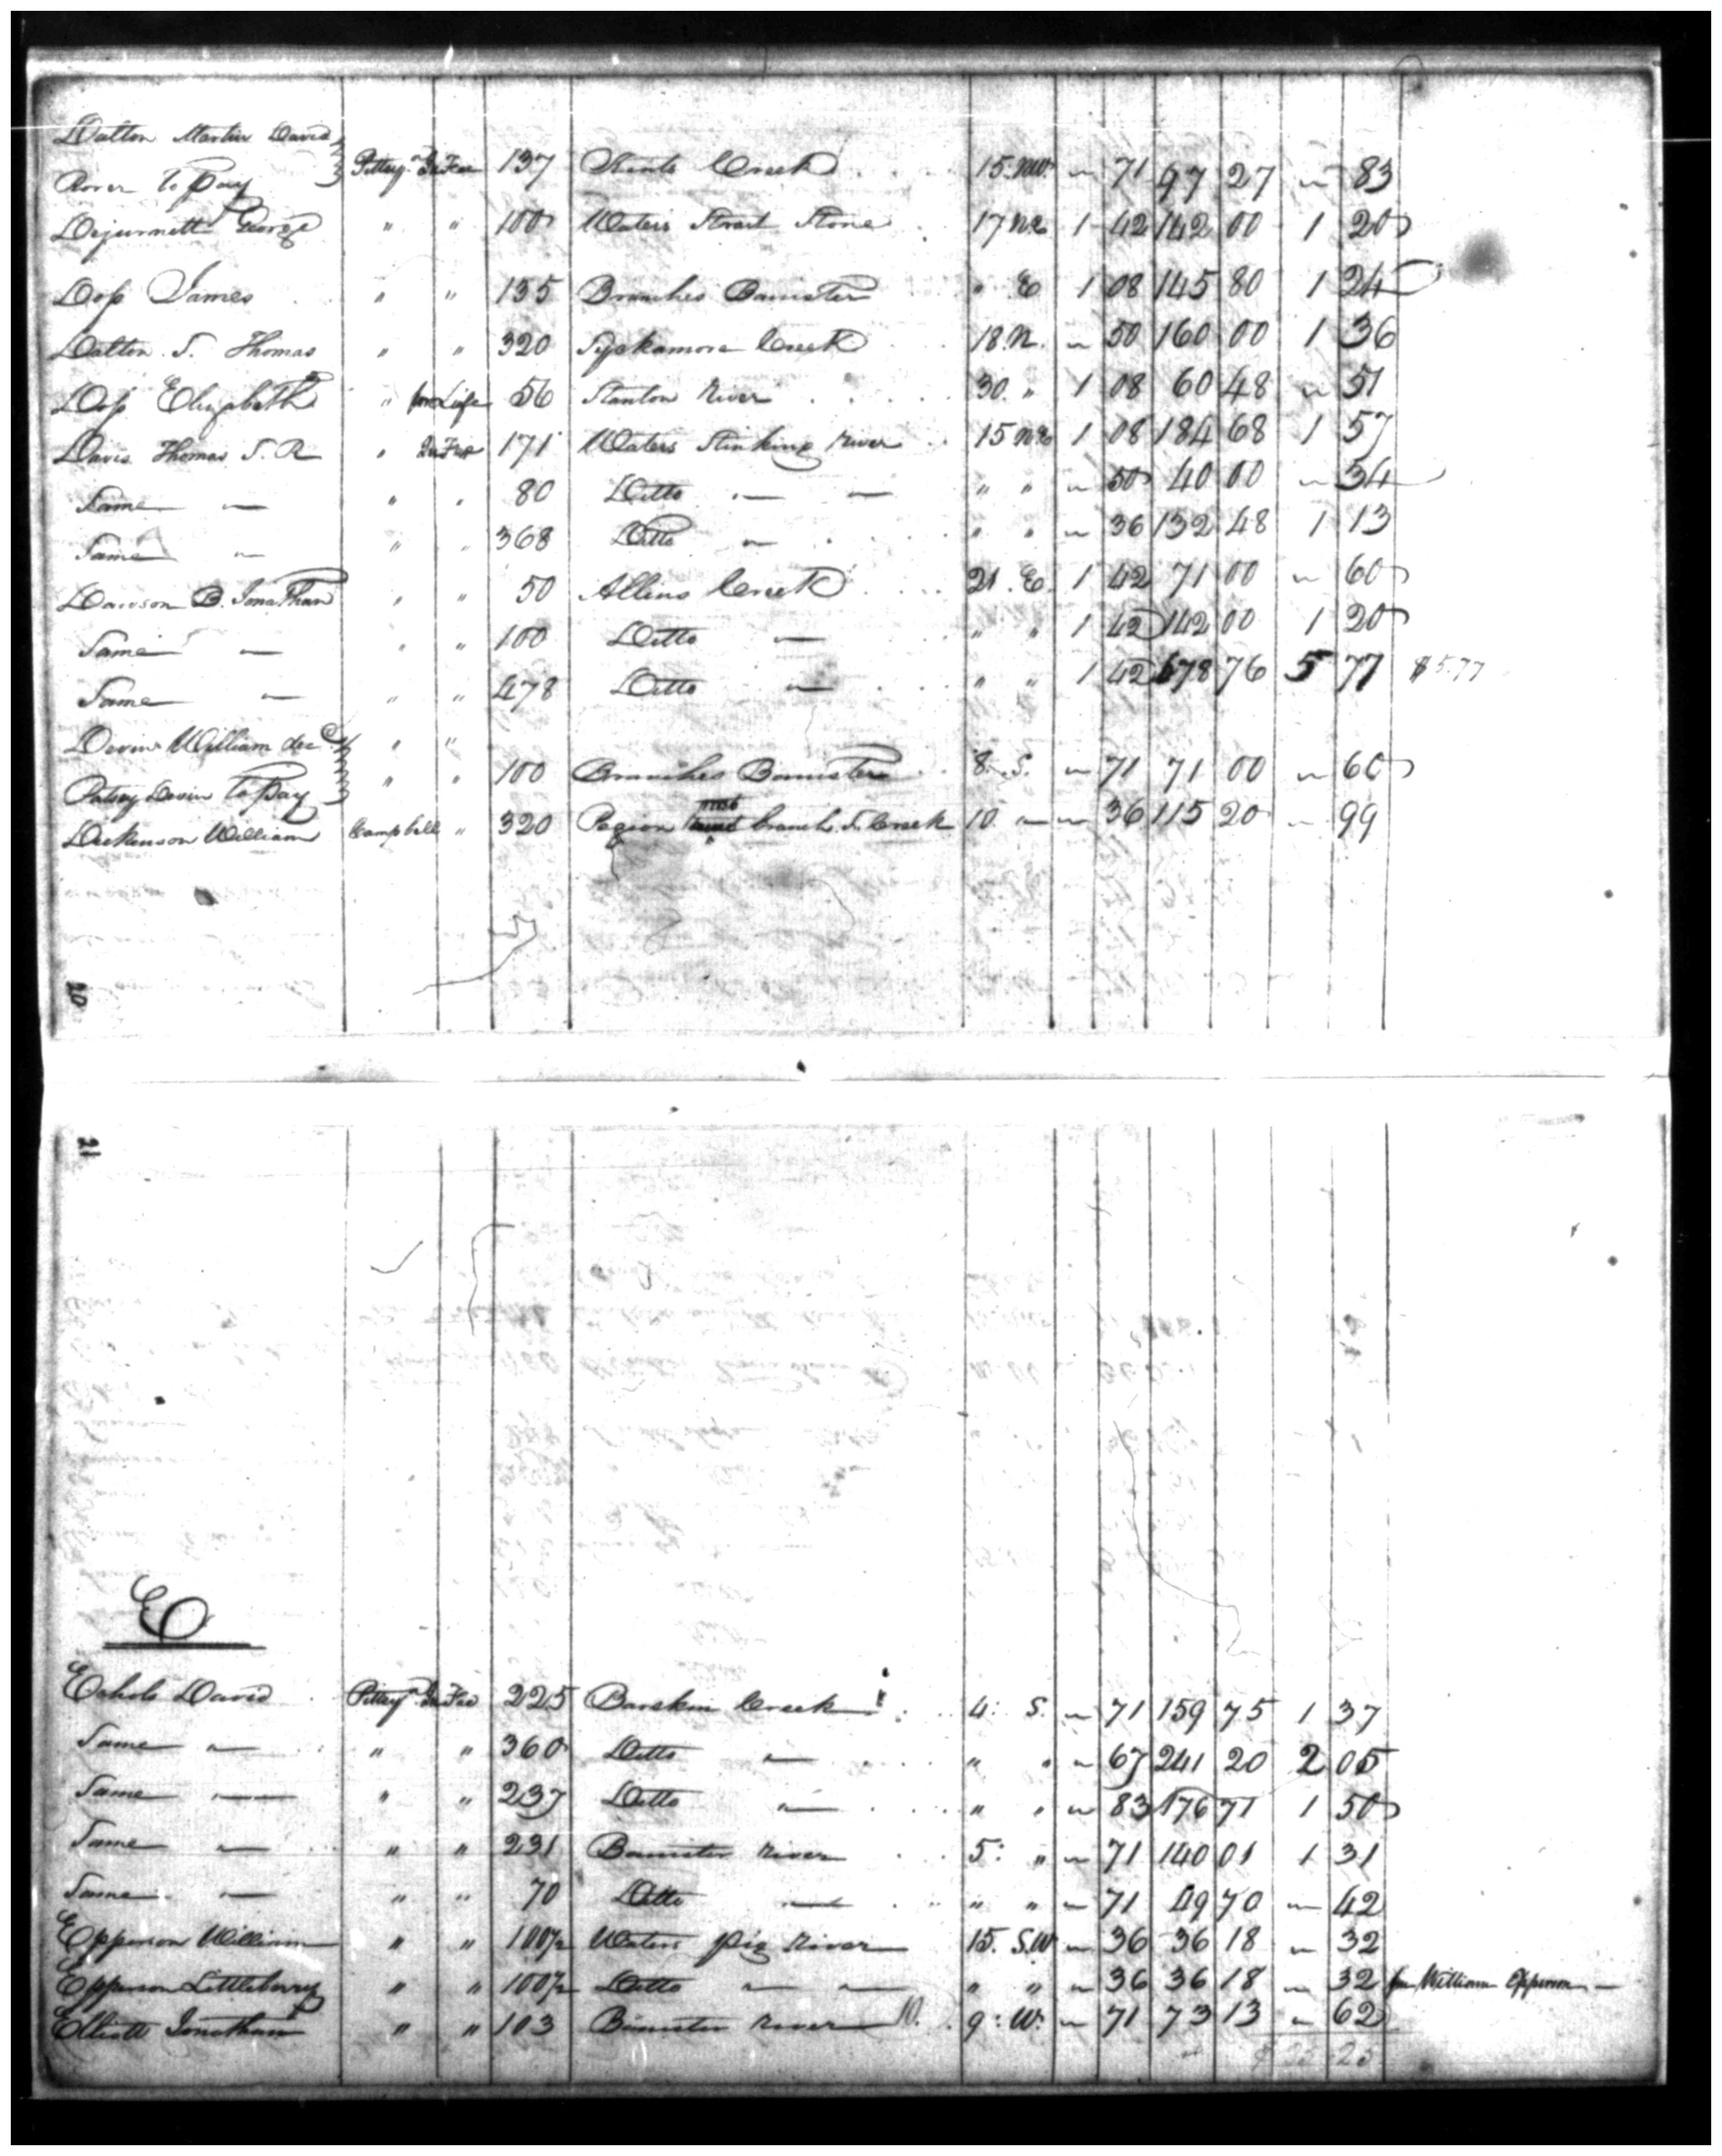 Dalton Martin David
Rover to pay Pittsyᵃ In Fee 137 Stints Creek 15. NW. " 71 97 27 " 83
Dejurnett George " " 100 Waters Strait Stone 17 NE 1 42 142 00 1 20
Doss James " " 135 Branches Banister " E 1 08 145 80 1 24
Dalton S. Thomas " " 320 Syckamore Creek 18. N. " 50 160 00 1 36
Doss Elizabeth " for Life 56 Stanton River 30. " 1 08 60 48 " 51
Davis Thomas S. R " In Fee 171 Waters Stinking River 15 NE 1 08 184 68 1 57
Same — " " 80 Ditto — — " " " 50 40 00 " 34
Same — " " 368 Ditto — " " " 36 132 48 1 13
Dawson B. Jonathan " " 50 Allens Creek 21. E. 1 42 71 00 " 60
Same — " " 100 Ditto — " " 1 42 142 00 1 20
Same — " " 478 Ditto — " " 1 42 678 76 5 77 $5.77
Devin William decᵈ " "
Patsey Devin to pay " " 100 Branches Banister 8. S. " 71 71 00 " 60
Dickenson William Campbell " 320 Pigion branch S. Creek 10 — " 36 115 20 " 99
20
21
E
Echols David Pittsyᵃ In Fee 225 Barskin Creek 4: S. " 71 159 75 1 37
Same — " " 360 Ditto — " " " 67 241 20 2 05
Same — " " 237 Ditto — " " " 83 176 71 1 50
Same — " " 231 Banister River 5: " " 71 140 01 1 31
Same — " " 70 Ditto — " " " 71 49 70 " 42
Epperson William " " 100½ Waters Pig River 15. S.W " 36 36 18 " 32
Epperson Littleberry " " 100½ Ditto — — " " " 36 36 18 " 32 for William Epperson —
Elliott Jonathan " " 103 Banister River 10. 9: W: " 71 73 13 " 62
$ 25 25